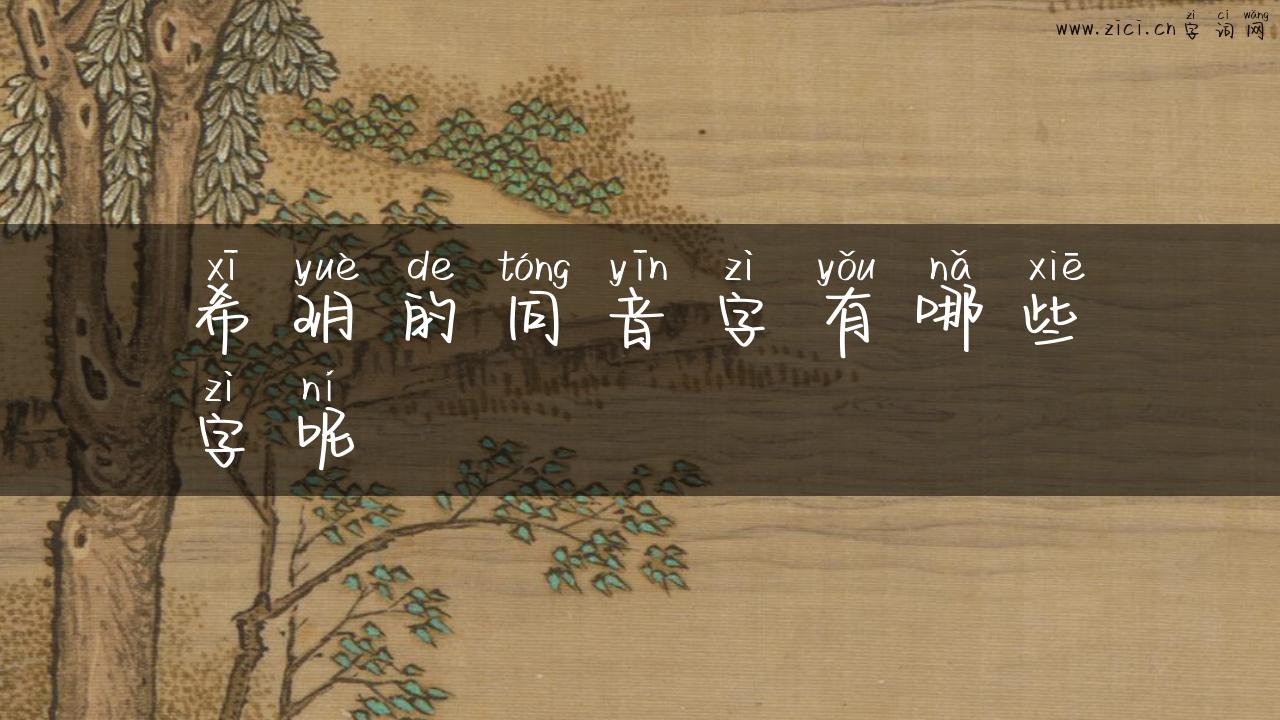 zì cí wǎng
www.zici.cn 字词网
xī yuè de tóng yīn zì yǒu nǎ xiē
希玥的同音字有哪些
zì ní
字呢